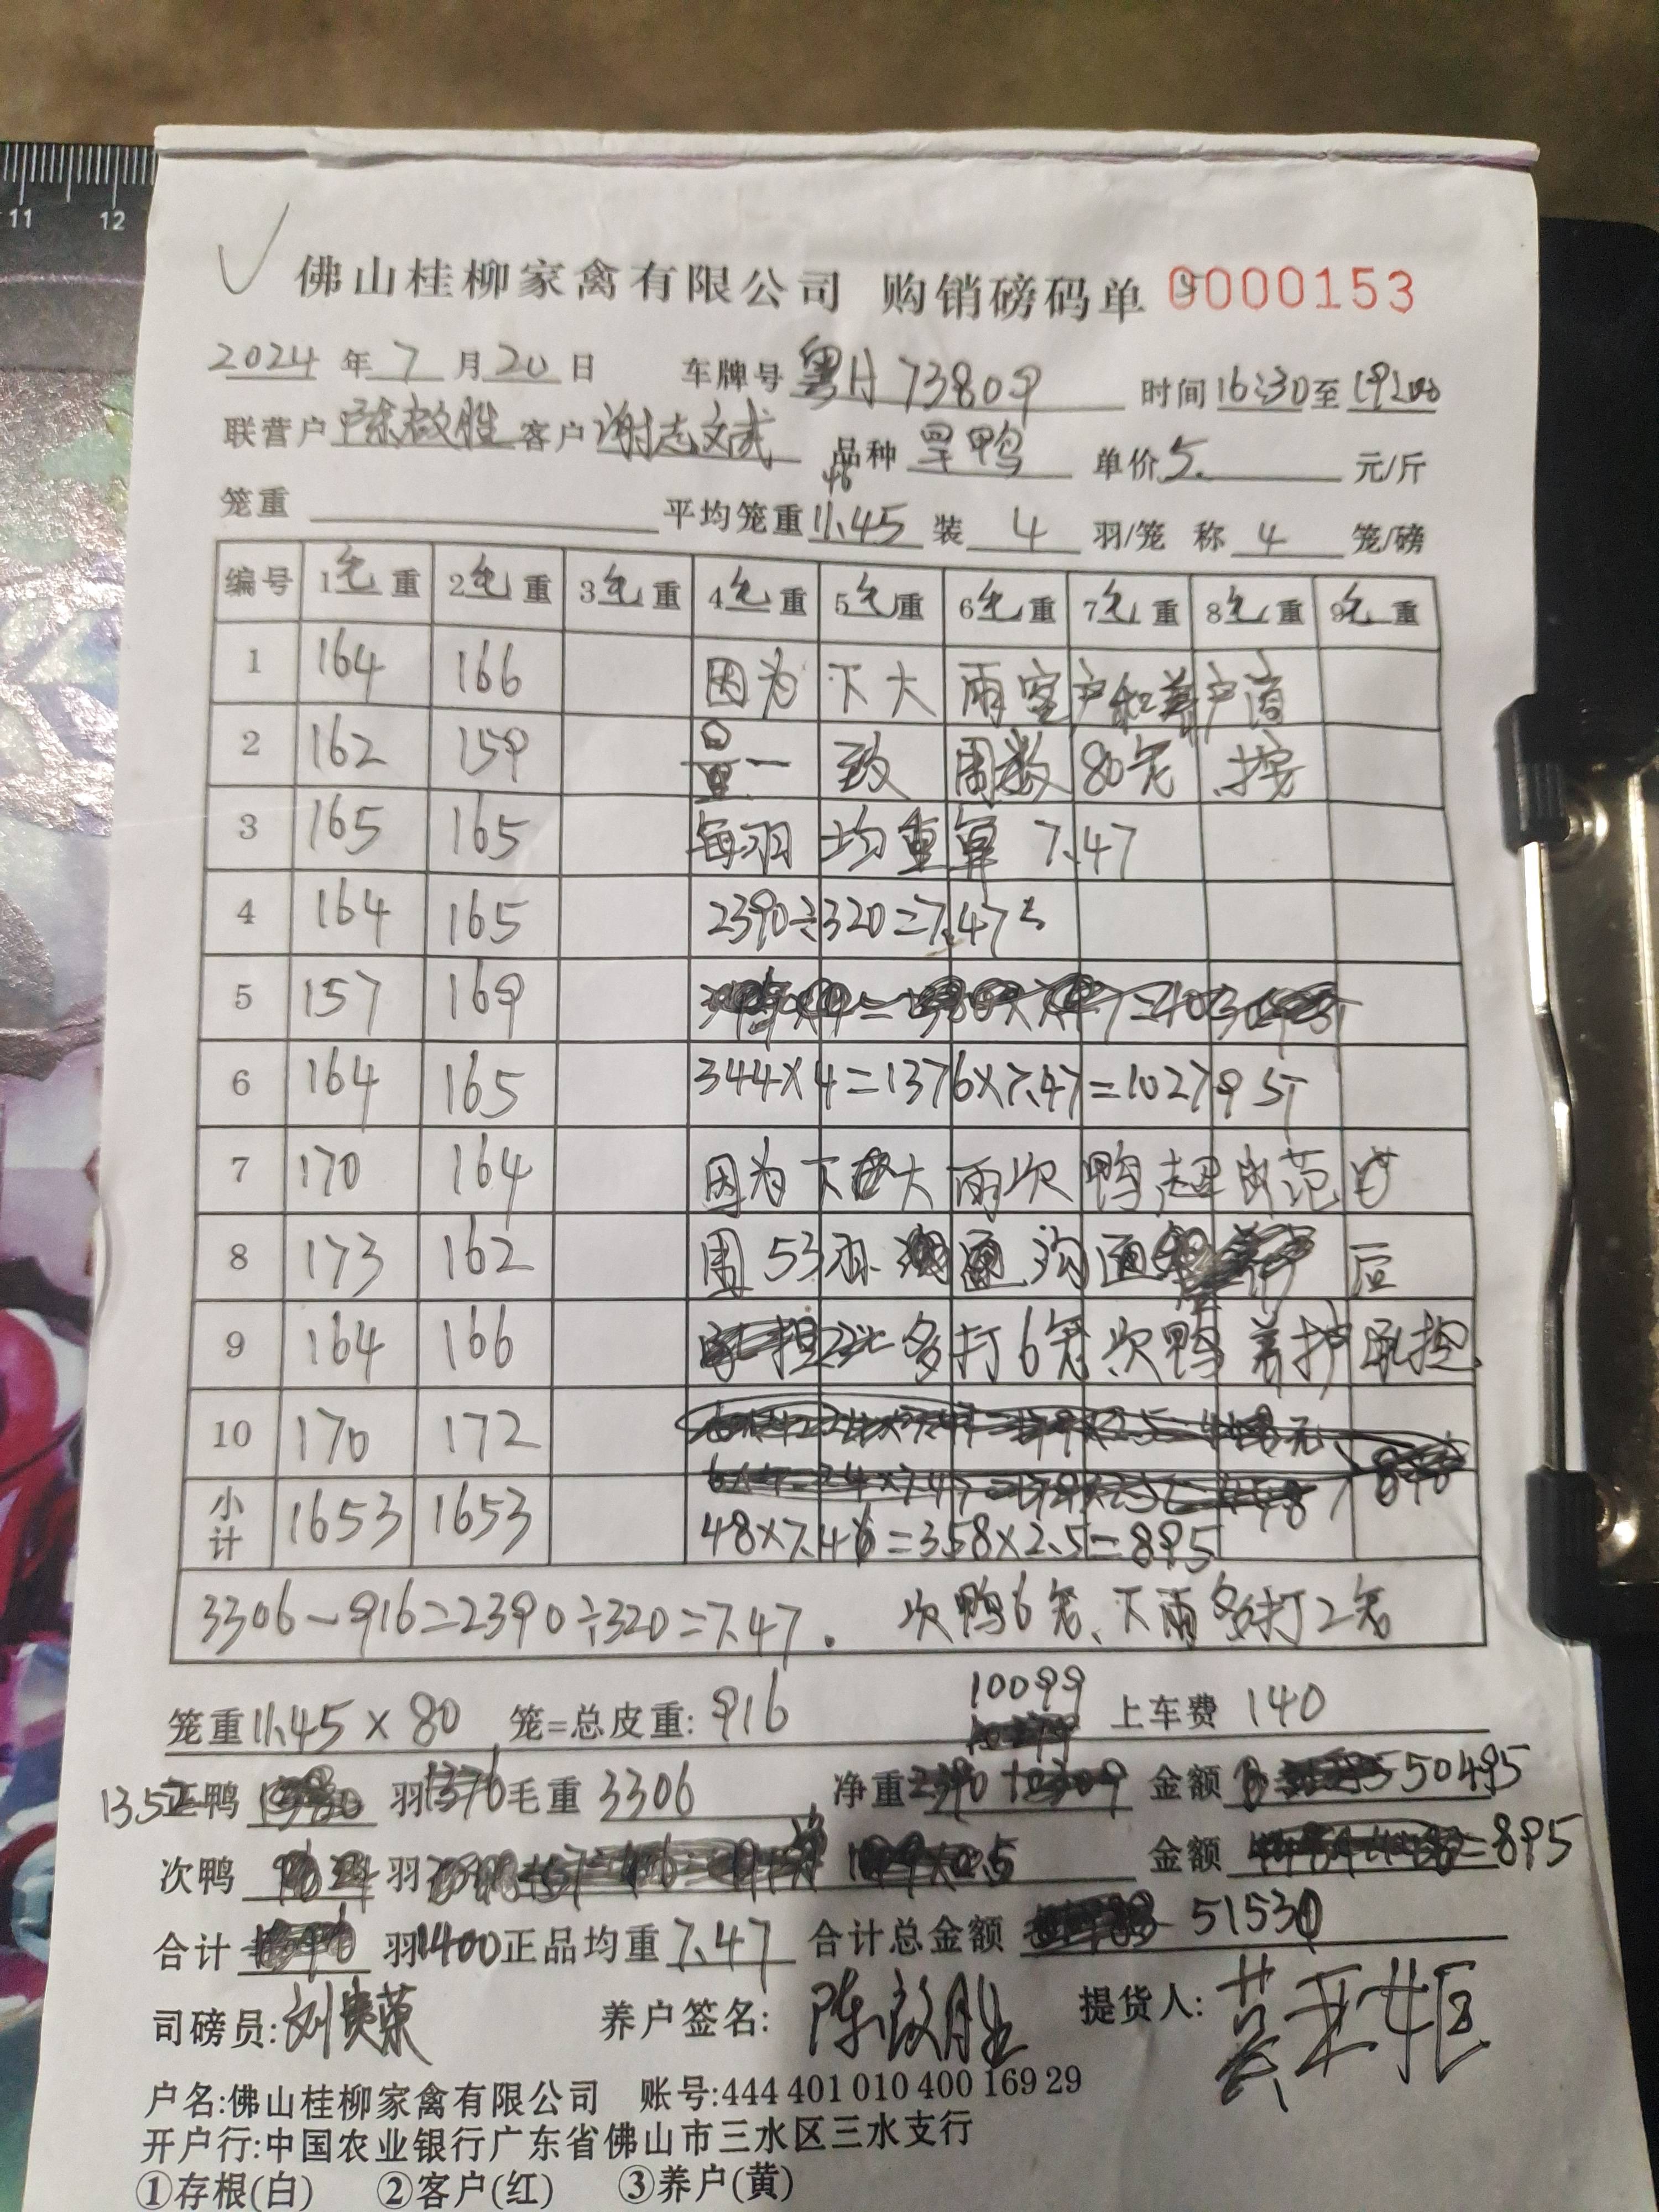 11 12
佛山桂柳家禽有限公司 购销磅码单 0000153
2024年7月20日 车牌号 粤A73809 时间16:30至19:00
联营户 陈啟胜 客户 谢志文武 品种 旱鸭 单价5. 元/斤
笼重 平均笼重11.45 装 4 羽/笼 称 4 笼/磅
编号 1毛重 2毛重 3毛重 4毛重 5毛重 6毛重 7毛重 8毛重 9毛重
1 164 166 因为下大雨客户和养户商
2 162 159 量一致 周数80笼 按
3 165 165 每羽均重算 7.47
4 164 165 2390÷320=7.47斤
5 157 169
6 164 165 344×4=1376×7.47=10279斤
7 170 164 因为下大雨次鸭超出范
8 173 162 围 53羽 沟通 后
9 164 166 多打6笼次鸭养护承担
10 170 172
小计 1653 1653 48×7.46=358×2.5=895
3306-916=2390÷320=7.47. 次鸭6笼、下雨多打2笼
笼重11.45×80 笼=总皮重: 916 10099 上车费 140
1352正鸭 羽1376毛重 3306 净重 金额 50495
次鸭 羽 金额 =895
合计 羽1400正品均重7.47 合计总金额 51530
司磅员: 养户签名: 陈啟胜 提货人:
户名:佛山桂柳家禽有限公司 账号:444 401 010 400 169 29
开户行:中国农业银行广东省佛山市三水区三水支行
①存根(白) ②客户(红) ③养户(黄)